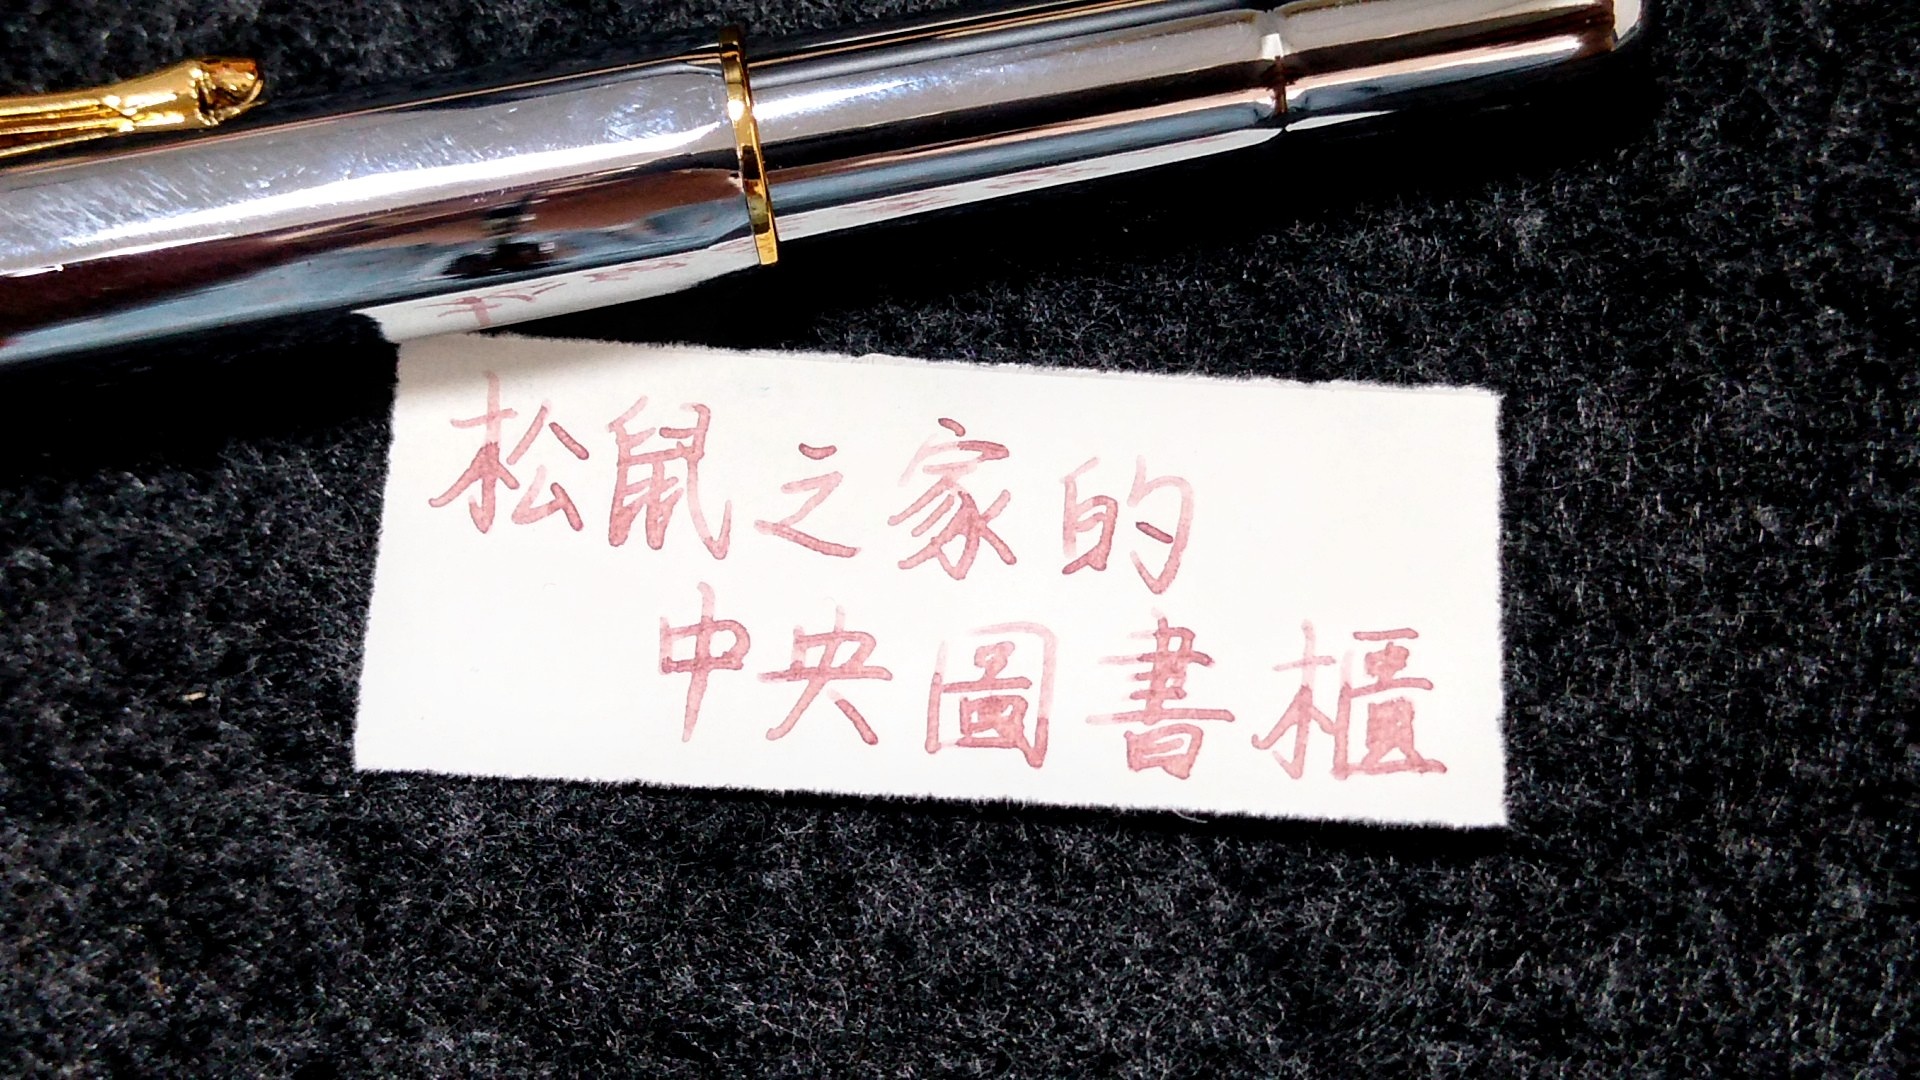 松鼠之家的
中央圖書櫃